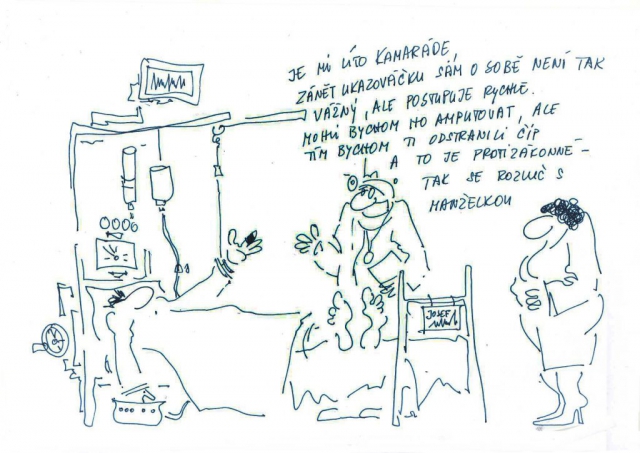 JE MI LÍTO KAMARÁDE,
ZÁNĚT UKAZOVÁČKU SÁM O SOBĚ NENÍ TAK
VÁŽNÝ, ALE POSTUPUJE RYCHLE.
MOHLI BYCHOM HO AMPUTOVAT, ALE
TÍM BYCHOM TI ODSTRANILI ČIP
A TO JE PROTIZÁKONNÉ –
TAK SE ROZLUČ S
MANŽELKOU
JOSEF